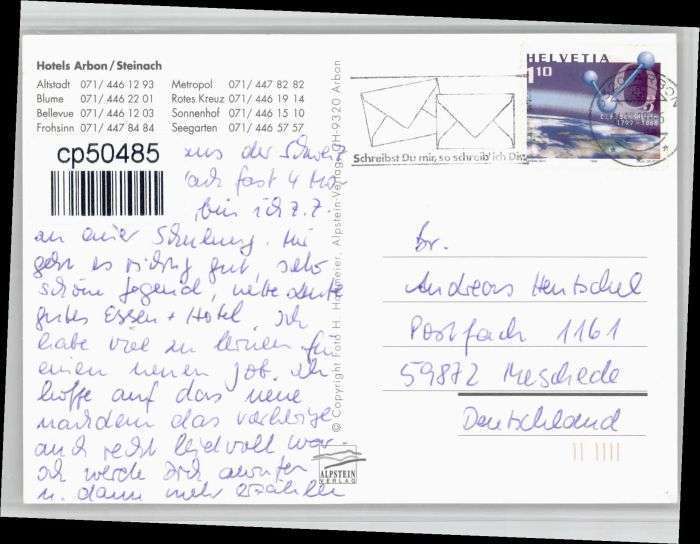 Hotels Arbon/Steinach
Altstadt 071/ 446 12 93 Metropol 071/ 447 82 82
Blume 071/ 446 22 01 Rotes Kreuz 071/ 446 19 14
Bellevue 071/ 446 12 03 Sonnenhof 071/ 446 15 10
Frohsinn 071/ 447 84 84 Seegarten 071/ 446 57 57
cp50485
aus der Schweiz
nach fast 4 Mo
bin ich z.Z.
an einer Schulung. Mir
geht es richtig gut, sehr
schöne Gegend, nette Leute
gutes Essen + Hotel. Ich
habe viel zu lernen für
einen neuen Job. Ich
hoffe auf das neue
nachdem das vorherige
auch recht leidvoll war.
Ich werde Dich anrufen
u. dann mehr erzählen
© Copyright Foto H. Alpstein-Verlag, CH-9320 Arbon
ALPSTEIN
VERLAG
Schreibst Du mir, so schreib' ich Dir
HELVETIA
110
C.F. Schönbein
1799-1868
Hr.
Andreas Hentschel
Postfach 1161
59872 Meschede
Deutschland